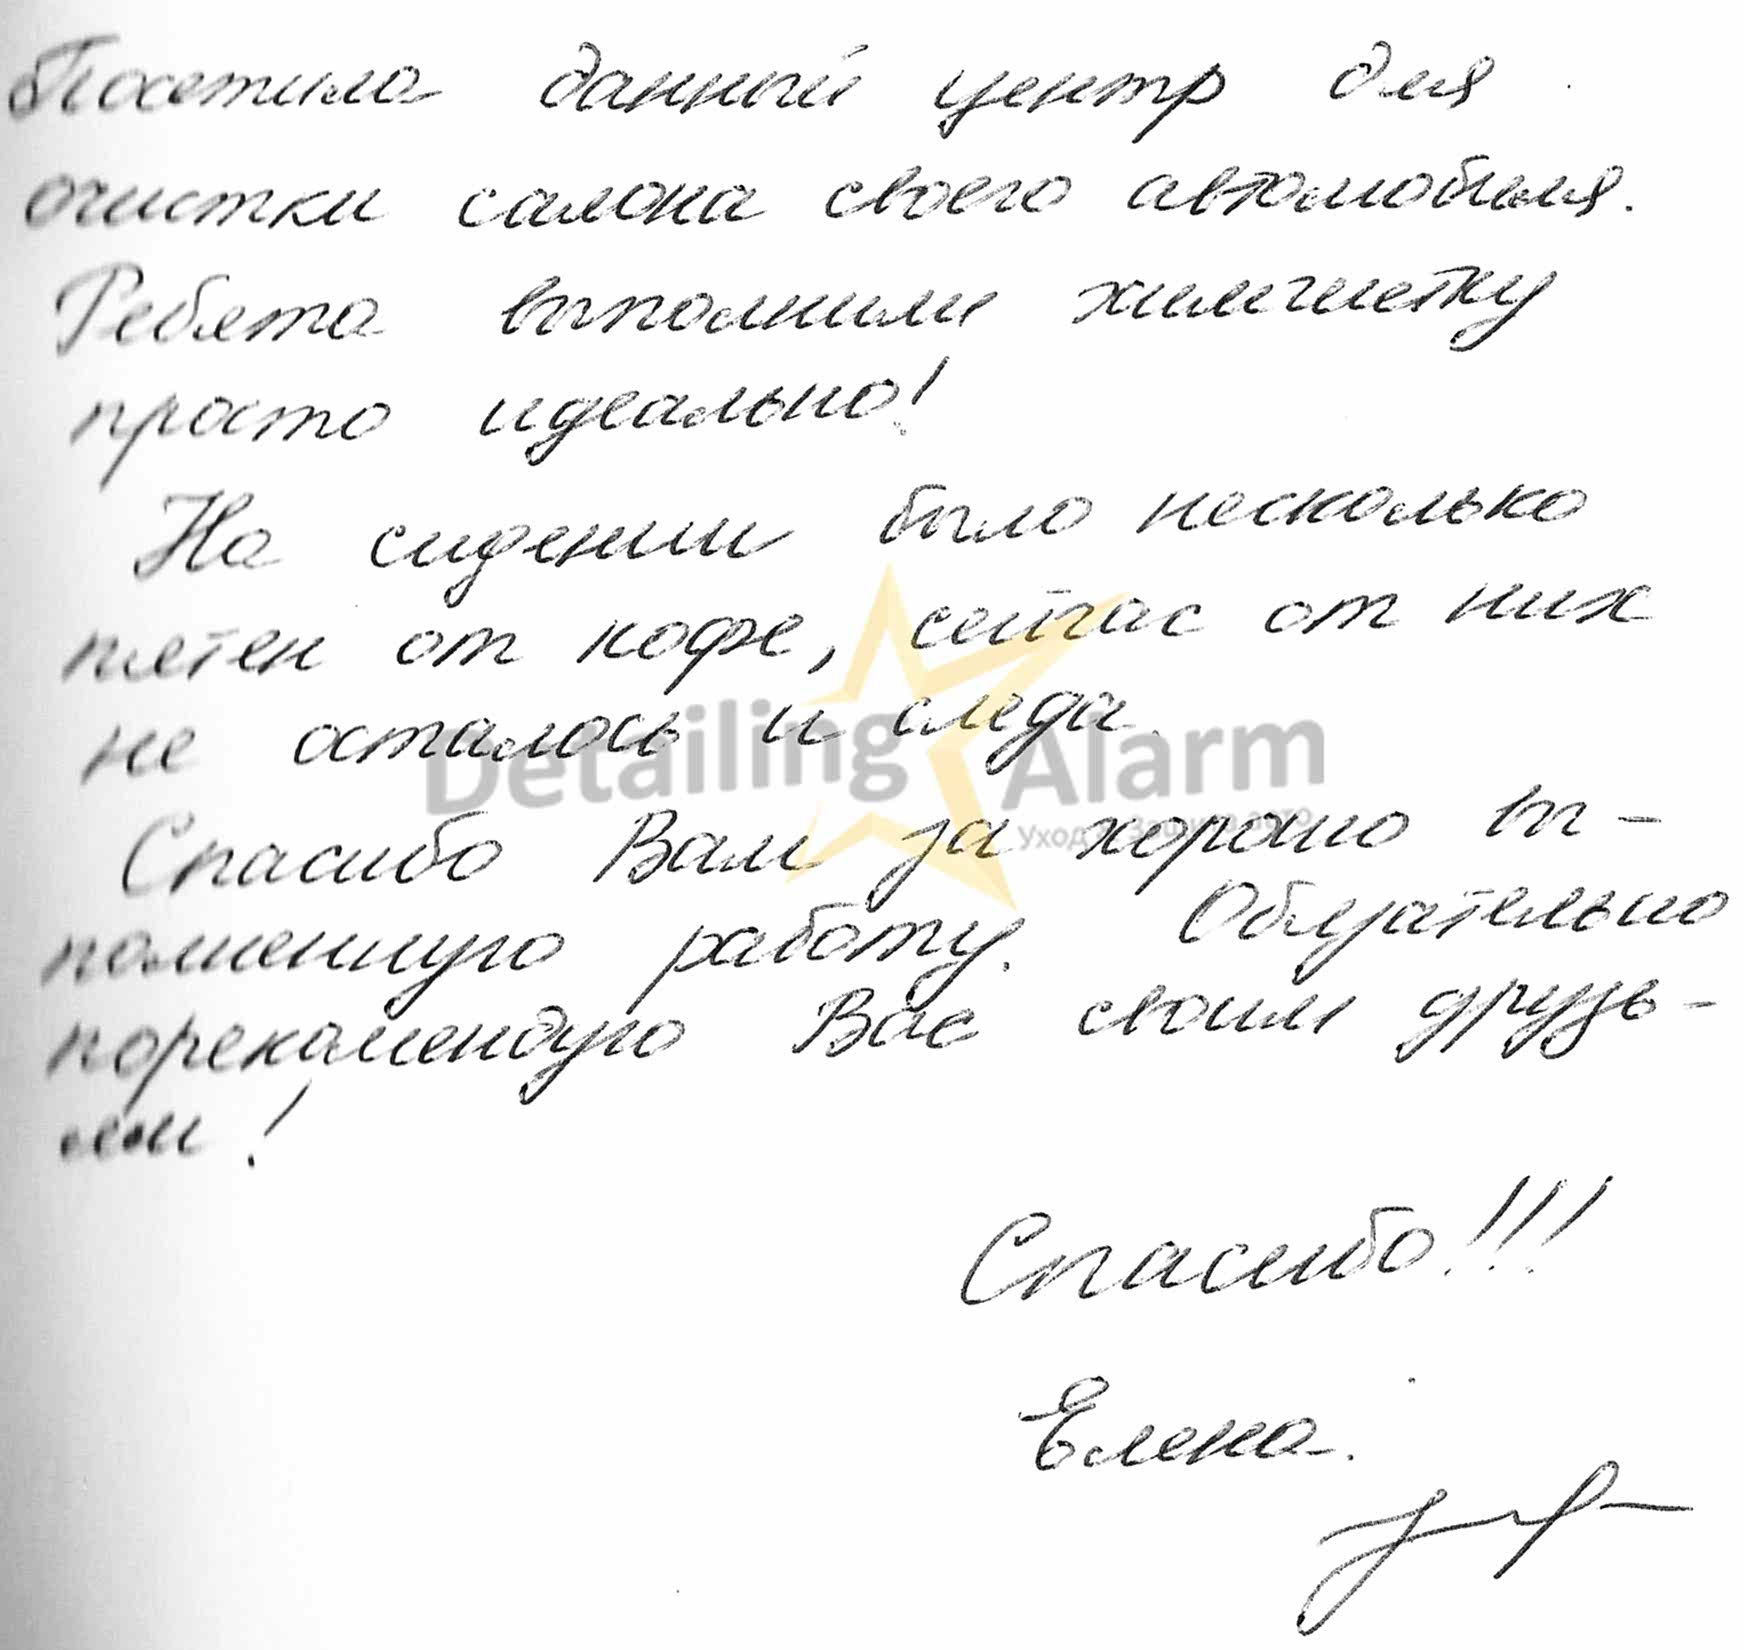 Посетила данный центр для
очистки салона своего автомобиля.
Ребята выполнили химчистку
просто идеально!
На сидении было несколько
пятен от кофе, сейчас от них
не осталось и следа.
Detailing Alarm
Уход & Защита авто
Спасибо Вам за хорошо вы-
полненную работу. Обязательно
порекомендую Вас своим друзь-
ям!
Спасибо!!!
Елена.